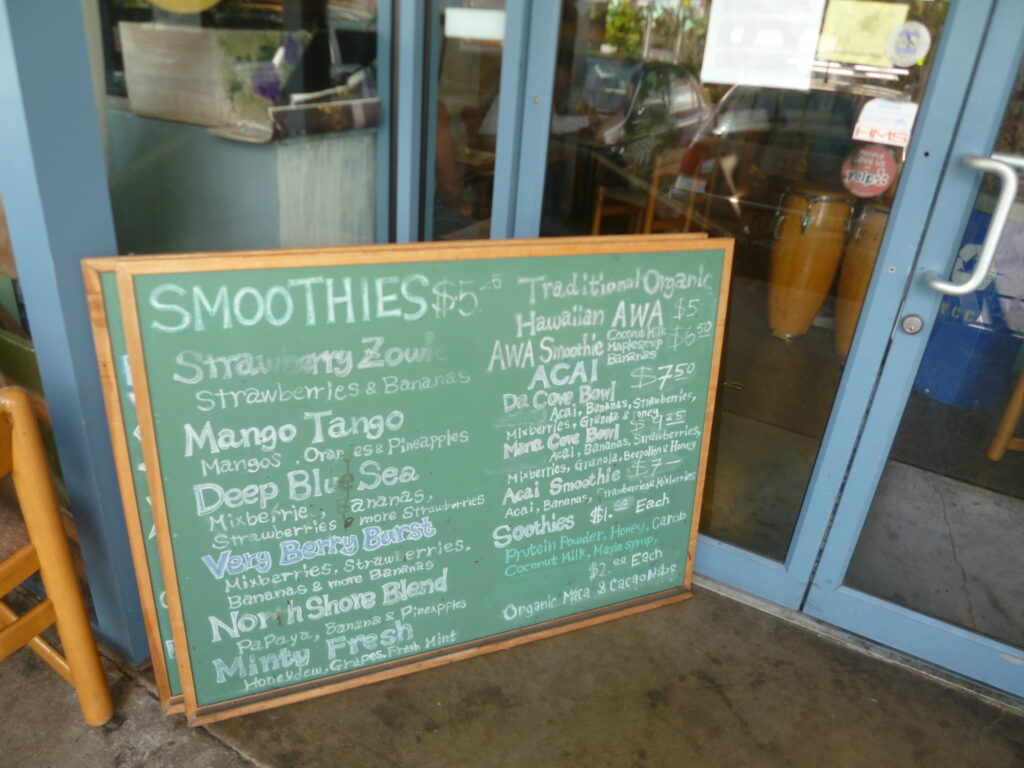 SMOOTHIES $5.45
Strawberry Zowie
Strawberries & Bananas
Mango Tango
Mangos, Oranges & Pineapples
Deep Blue Sea
Mixberries, Bananas,
Strawberries & more Strawberries
Very Berry Burst
Mixberries, Strawberries,
Bananas & more Bananas
North Shore Blend
Papaya, Banana & Pineapples
Minty Fresh
Honeydew, Grapes, Fresh Mint
Traditional Organic
Hawaiian AWA $5
AWA Smoothie Coconut Milk $6.50
Maple syrup
Bananas
ACAI
Da Cove Bowl $7.50
Acai, Bananas, Strawberries,
Mixberries, Granola & Honey
Mana Cove Bowl $9.25
Acai, Bananas, Strawberries,
Mixberries, Granola, Beepollen & Honey
Acai Smoothie $7
Acai, Bananas, Strawberries & Mixberries
Soothies $1.00 Each
Protein Powder, Honey, Carob
Coconut Milk, Maple syrup.
$2.00 Each
Organic Maca & Cacao Nibs
HMS
PEOPLE
LOVE US
yelp